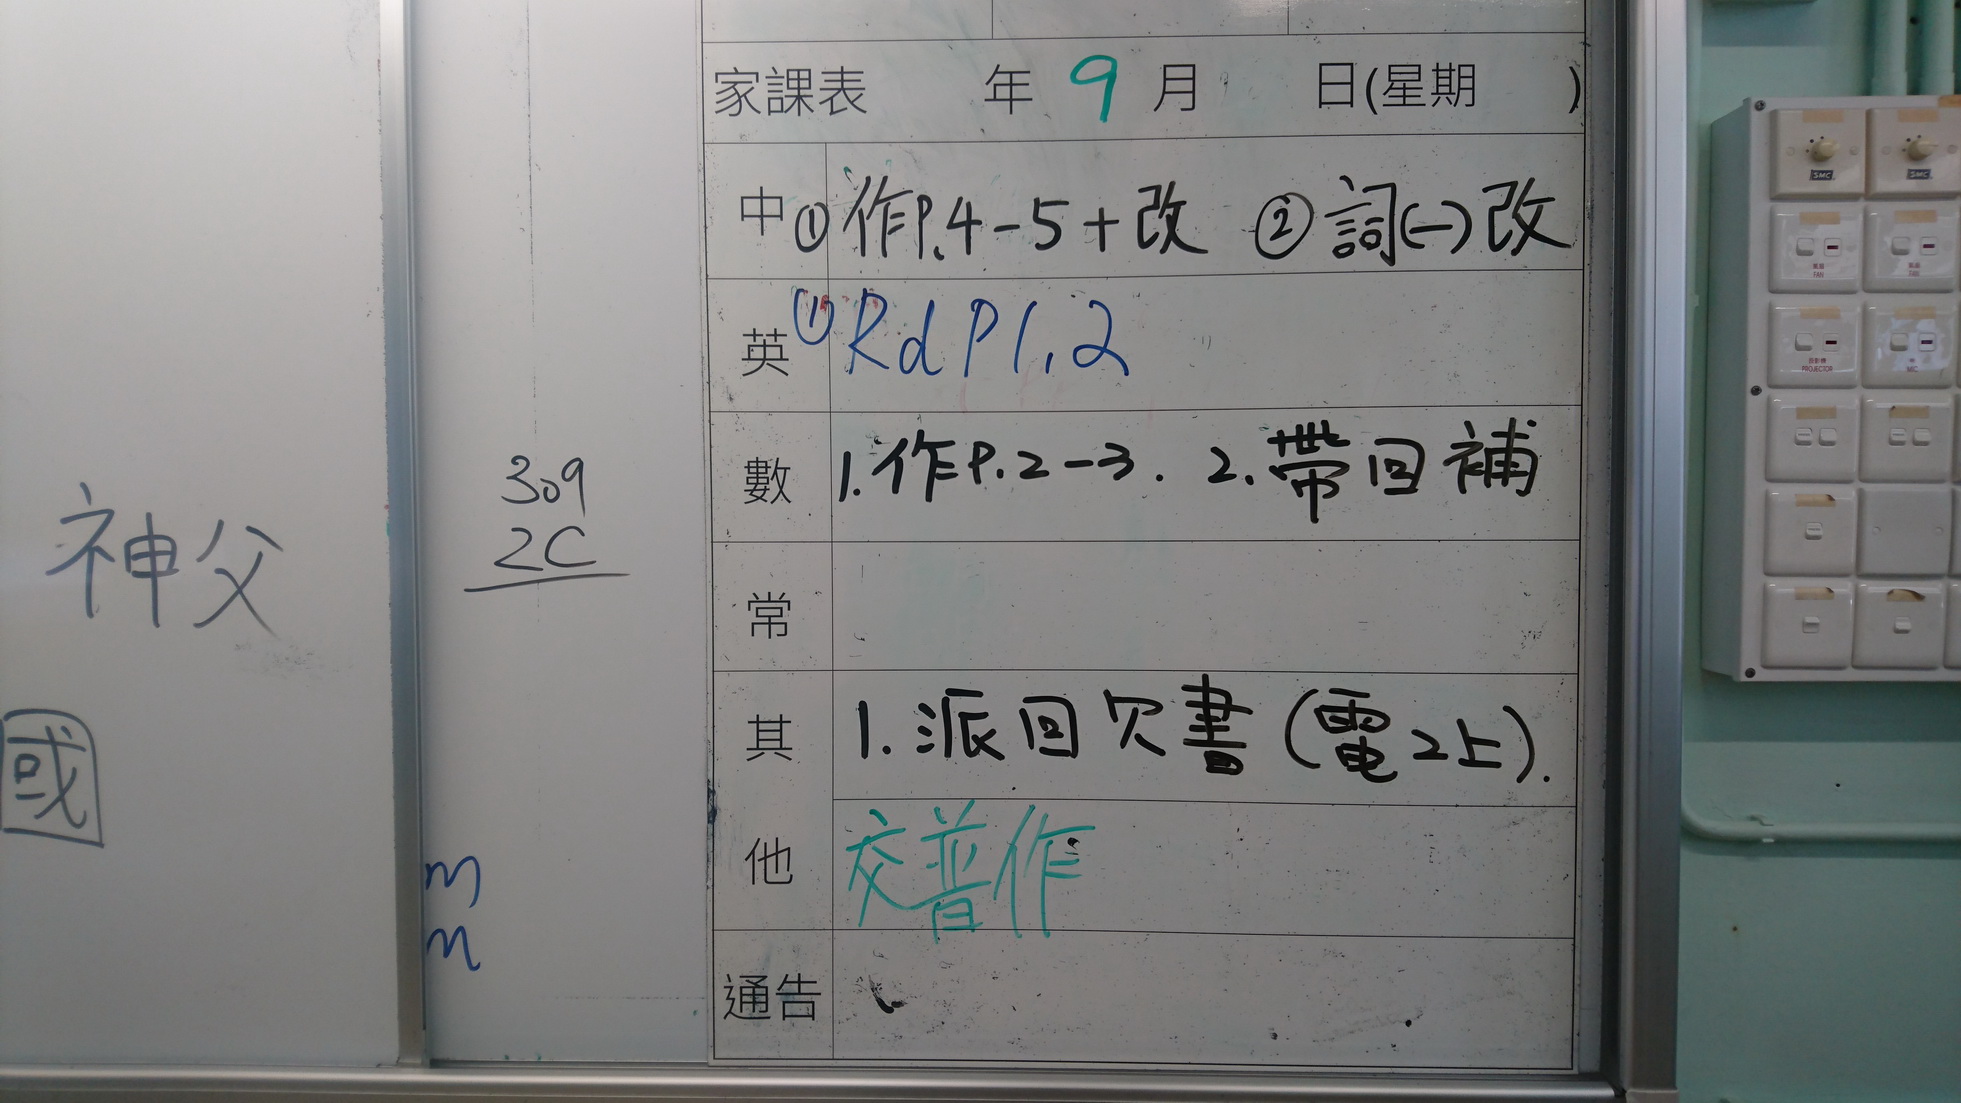 神父
國
309
2C
m
n
家課表 年 9 月 日(星期 )
中 ①作P.4-5+改 ②詞(一)改
英 ①Rd P1,2
數 1.作P.2-3. 2.帶回補
常
其 1.派回欠書(電2上).
他 交普作
通告
SMC SMC
風扇 FAN
風扇 FAN
投影機 PROJECTOR
MIC